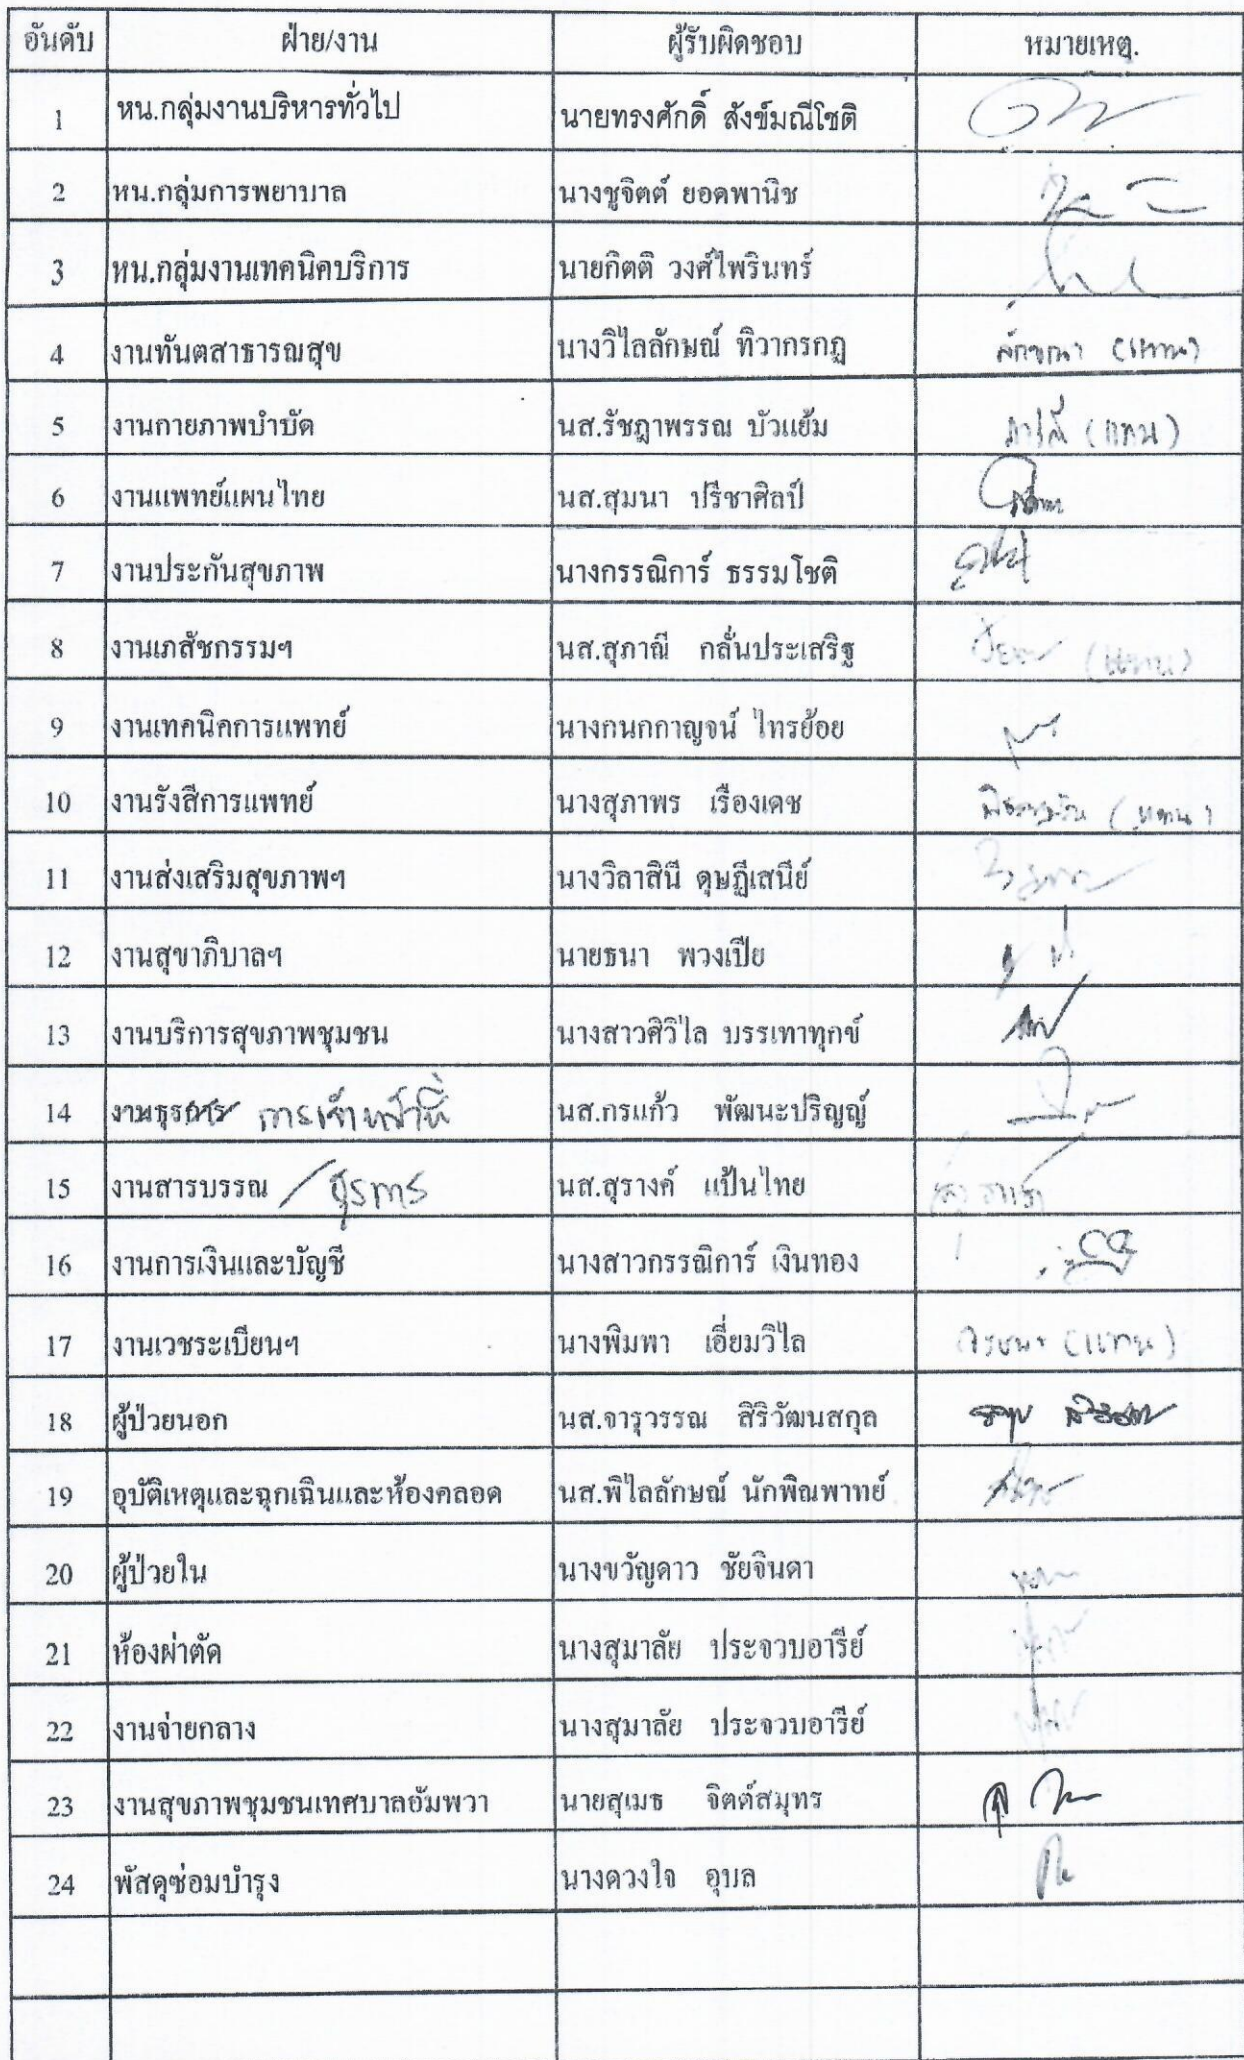 อันดับ ฝ่าย/งาน ผู้รับผิดชอบ หมายเหตุ.
1 หน.กลุ่มงานบริหารทั่วไป นายทรงศักดิ์ สังข์มณีโชติ
2 หน.กลุ่มการพยาบาล นางชูจิตต์ ยอดพานิช
3 หน.กลุ่มงานเทคนิคบริการ นายกิตติ วงศ์ไพรินทร์
4 งานทันตสาธารณสุข นางวิไลลักษณ์ ทิวากรกฎ (แทน)
5 งานกายภาพบำบัด นส.รัชฎาพรรณ บัวแย้ม (แทน)
6 งานแพทย์แผนไทย นส.สุมนา ปรีชาศิลป์
7 งานประกันสุขภาพ นางกรรณิการ์ ธรรมโชติ
8 งานเภสัชกรรมฯ นส.สุภาณี กลั่นประเสริฐ (แทน)
9 งานเทคนิคการแพทย์ นางกนกกาญจน์ ไทรย้อย
10 งานรังสีการแพทย์ นางสุภาพร เรืองเดช (แทน)
11 งานส่งเสริมสุขภาพฯ นางวิลาสินี ดุษฎีเสนีย์
12 งานสุขาภิบาลฯ นายธนา พวงเปีย
13 งานบริการสุขภาพชุมชน นางสาวศิวิไล บรรเทาทุกข์
14 งานธุรการ การเจ้าหน้าที่ นส.กรแก้ว พัฒนะปริญญ์
15 งานสารบรรณ / ธุรการ นส.สุรางค์ แป้นไทย
16 งานการเงินและบัญชี นางสาวกรรณิการ์ เงินทอง
17 งานเวชระเบียนฯ นางพิมพา เอี่ยมวิไล (แทน)
18 ผู้ป่วยนอก นส.จารุวรรณ สิริวัฒนสกุล
19 อุบัติเหตุและฉุกเฉินและห้องคลอด นส.พิไลลักษณ์ นักพิณพาทย์
20 ผู้ป่วยใน นางขวัญดาว ชัยจินดา
21 ห้องผ่าตัด นางสุมาลัย ประจวบอารีย์
22 งานจ่ายกลาง นางสุมาลัย ประจวบอารีย์
23 งานสุขภาพชุมชนเทศบาลอัมพวา นายสุเมธ จิตต์สมุทร
24 พัสดุซ่อมบำรุง นางดวงใจ อุบล